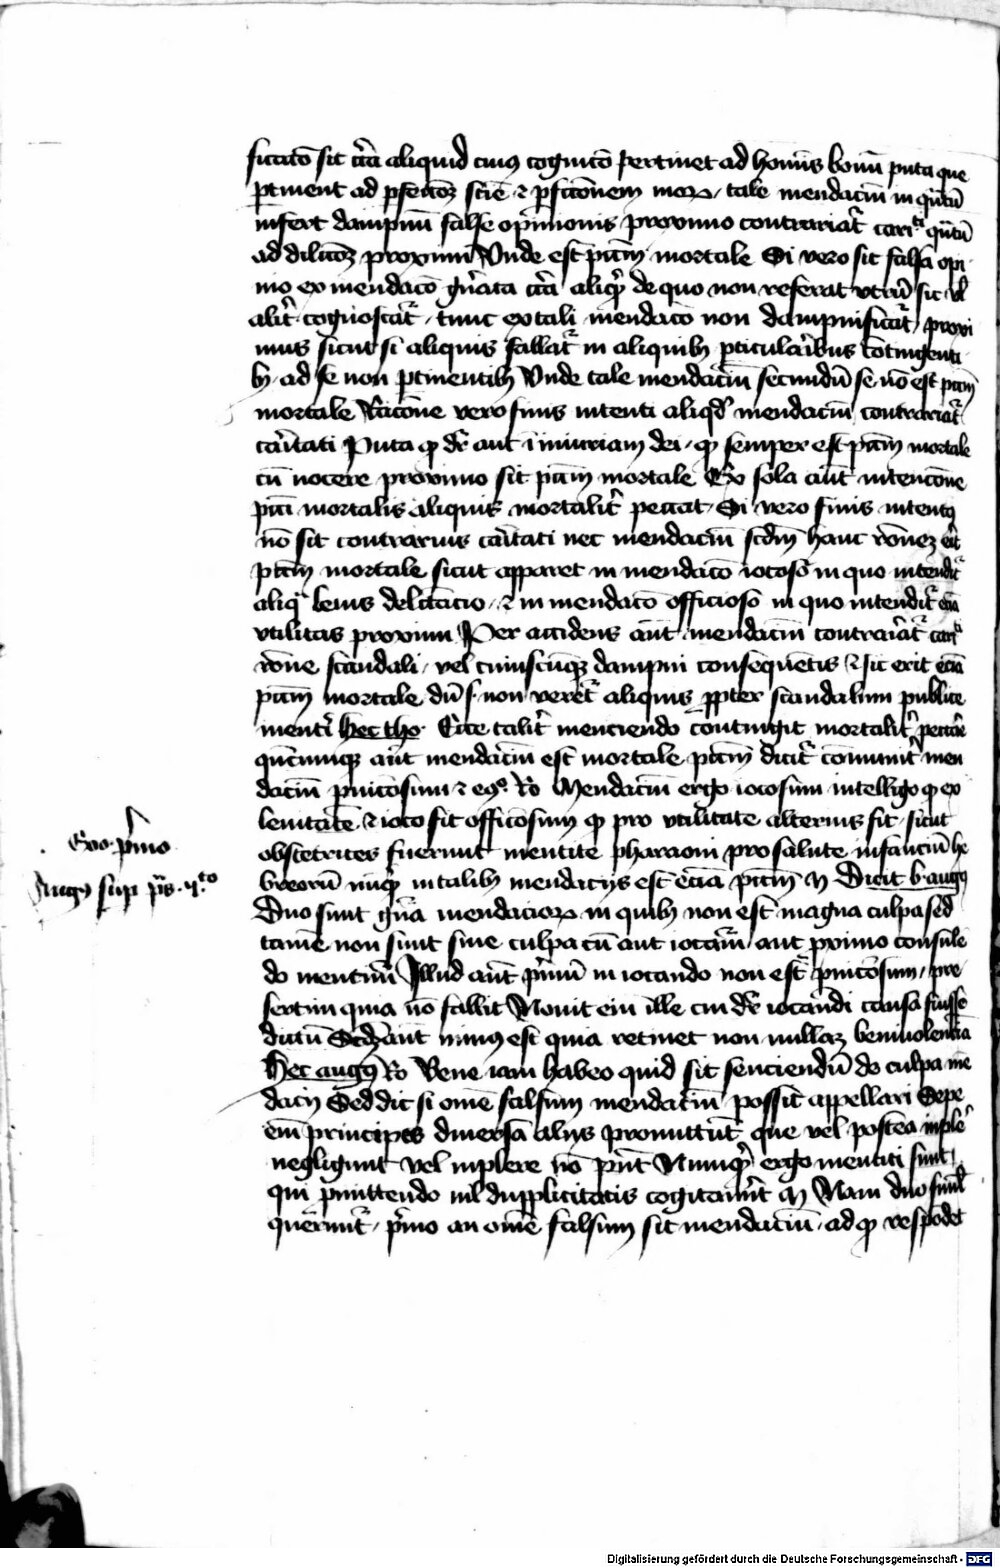 sit circa aliquid cuius cognicō pertinet ad hominis bonū puta que
ptinent ad pfectōꝫ sciē ⁊ pfcionem moꝝ tale mendaciū in qntū
infert dampnum false opinionis proximo contrariatr carti qntū
ad dilcōꝫ proximi Unde est pctm mortale Si vero sit falsa opi
nio ex mendacō gnata circa aliqd de quo non referat vtrū sic vl
alitr cognoscatr tunc ex tali mendacō non dampnificatr proxi
mus sicut si aliquis fallatr in aliquibȝ pticularibus contingenti
bȝ ad se non ptinentibȝ Unde tale mendaciū secundū se nō est pctm
mortale Racōne vero finis intenti aliqd mendaciū contrariatr
caritati Puta qd dr aut in iniuriam dei qd semper est pctm mortale
cū nocere proximo sit pctm mortale Ex sola aūt intencōne
pcti mortalis aliquis mortalitr peccat Si vero finis intentꝰ
nō sit contrarius caritati nec mendaciū scdm hanc rōneꝫ erit
pctm mortale sicut apparet in mendacō iocoso in quo intenditr
aliqua leuis delectacio ⁊ in mendacō officioso in quo intenditr eciā
vtilitas proximi Per accidens aūt mendaciū contrariatr carti
rōne scandali vel cuiuscumqꝫ dampni consequentis ⁊ sic erit eciā
pctm mortale dū s non veretr aliquis ppter scandalum publice
mentiri Hec tho Ecce talitr menciendo contingit mortalitr peccare
qncumqꝫ aūt mendaciū est mortale pctm dicitr comunitr men
daciū pniciosum Ro Mendaciū ergo iocosum intelligo qd ex
leuitate ⁊ ioco fit officiosum qd pro vtilitate alterius fit sicut
obstetrices fuerunt mentite pharaoni pro salute infanciū he
breorū nūqd in talibȝ mendacijs est eciā pctm Dicit b augꝰ
Duo sunt gnā mendacioꝝ in quibȝ non est magna culpa sed
tamē non sunt sine culpa cū aut iocamur aut proximo consule
do mentimur Illud aūt primū in iocando non est pniciosum pre
sertim quia nō fallit Nouit eni ille cui dr iocandi causa fuisse
dictū Scdm aūt minus est quia retinet non nullaꝫ beniuolentiā
Hec augꝰ Ro Bene iam habeo quid sit senciendū de culpa me
dacij Sed dic si omē falsum mendaciū possit appellari Sepe
eni principes diuersa alijs promittūt que vel postea inplere
negligunt vel inplere nō pnt Nunqd ergo mentiti sunt
qui pmittendo nil dupplicitatis cogitauerūt Nam duo simul
querunt primo an omē falsum sit mendaciū ad qd respodet
Augꝰ sup ps 5to